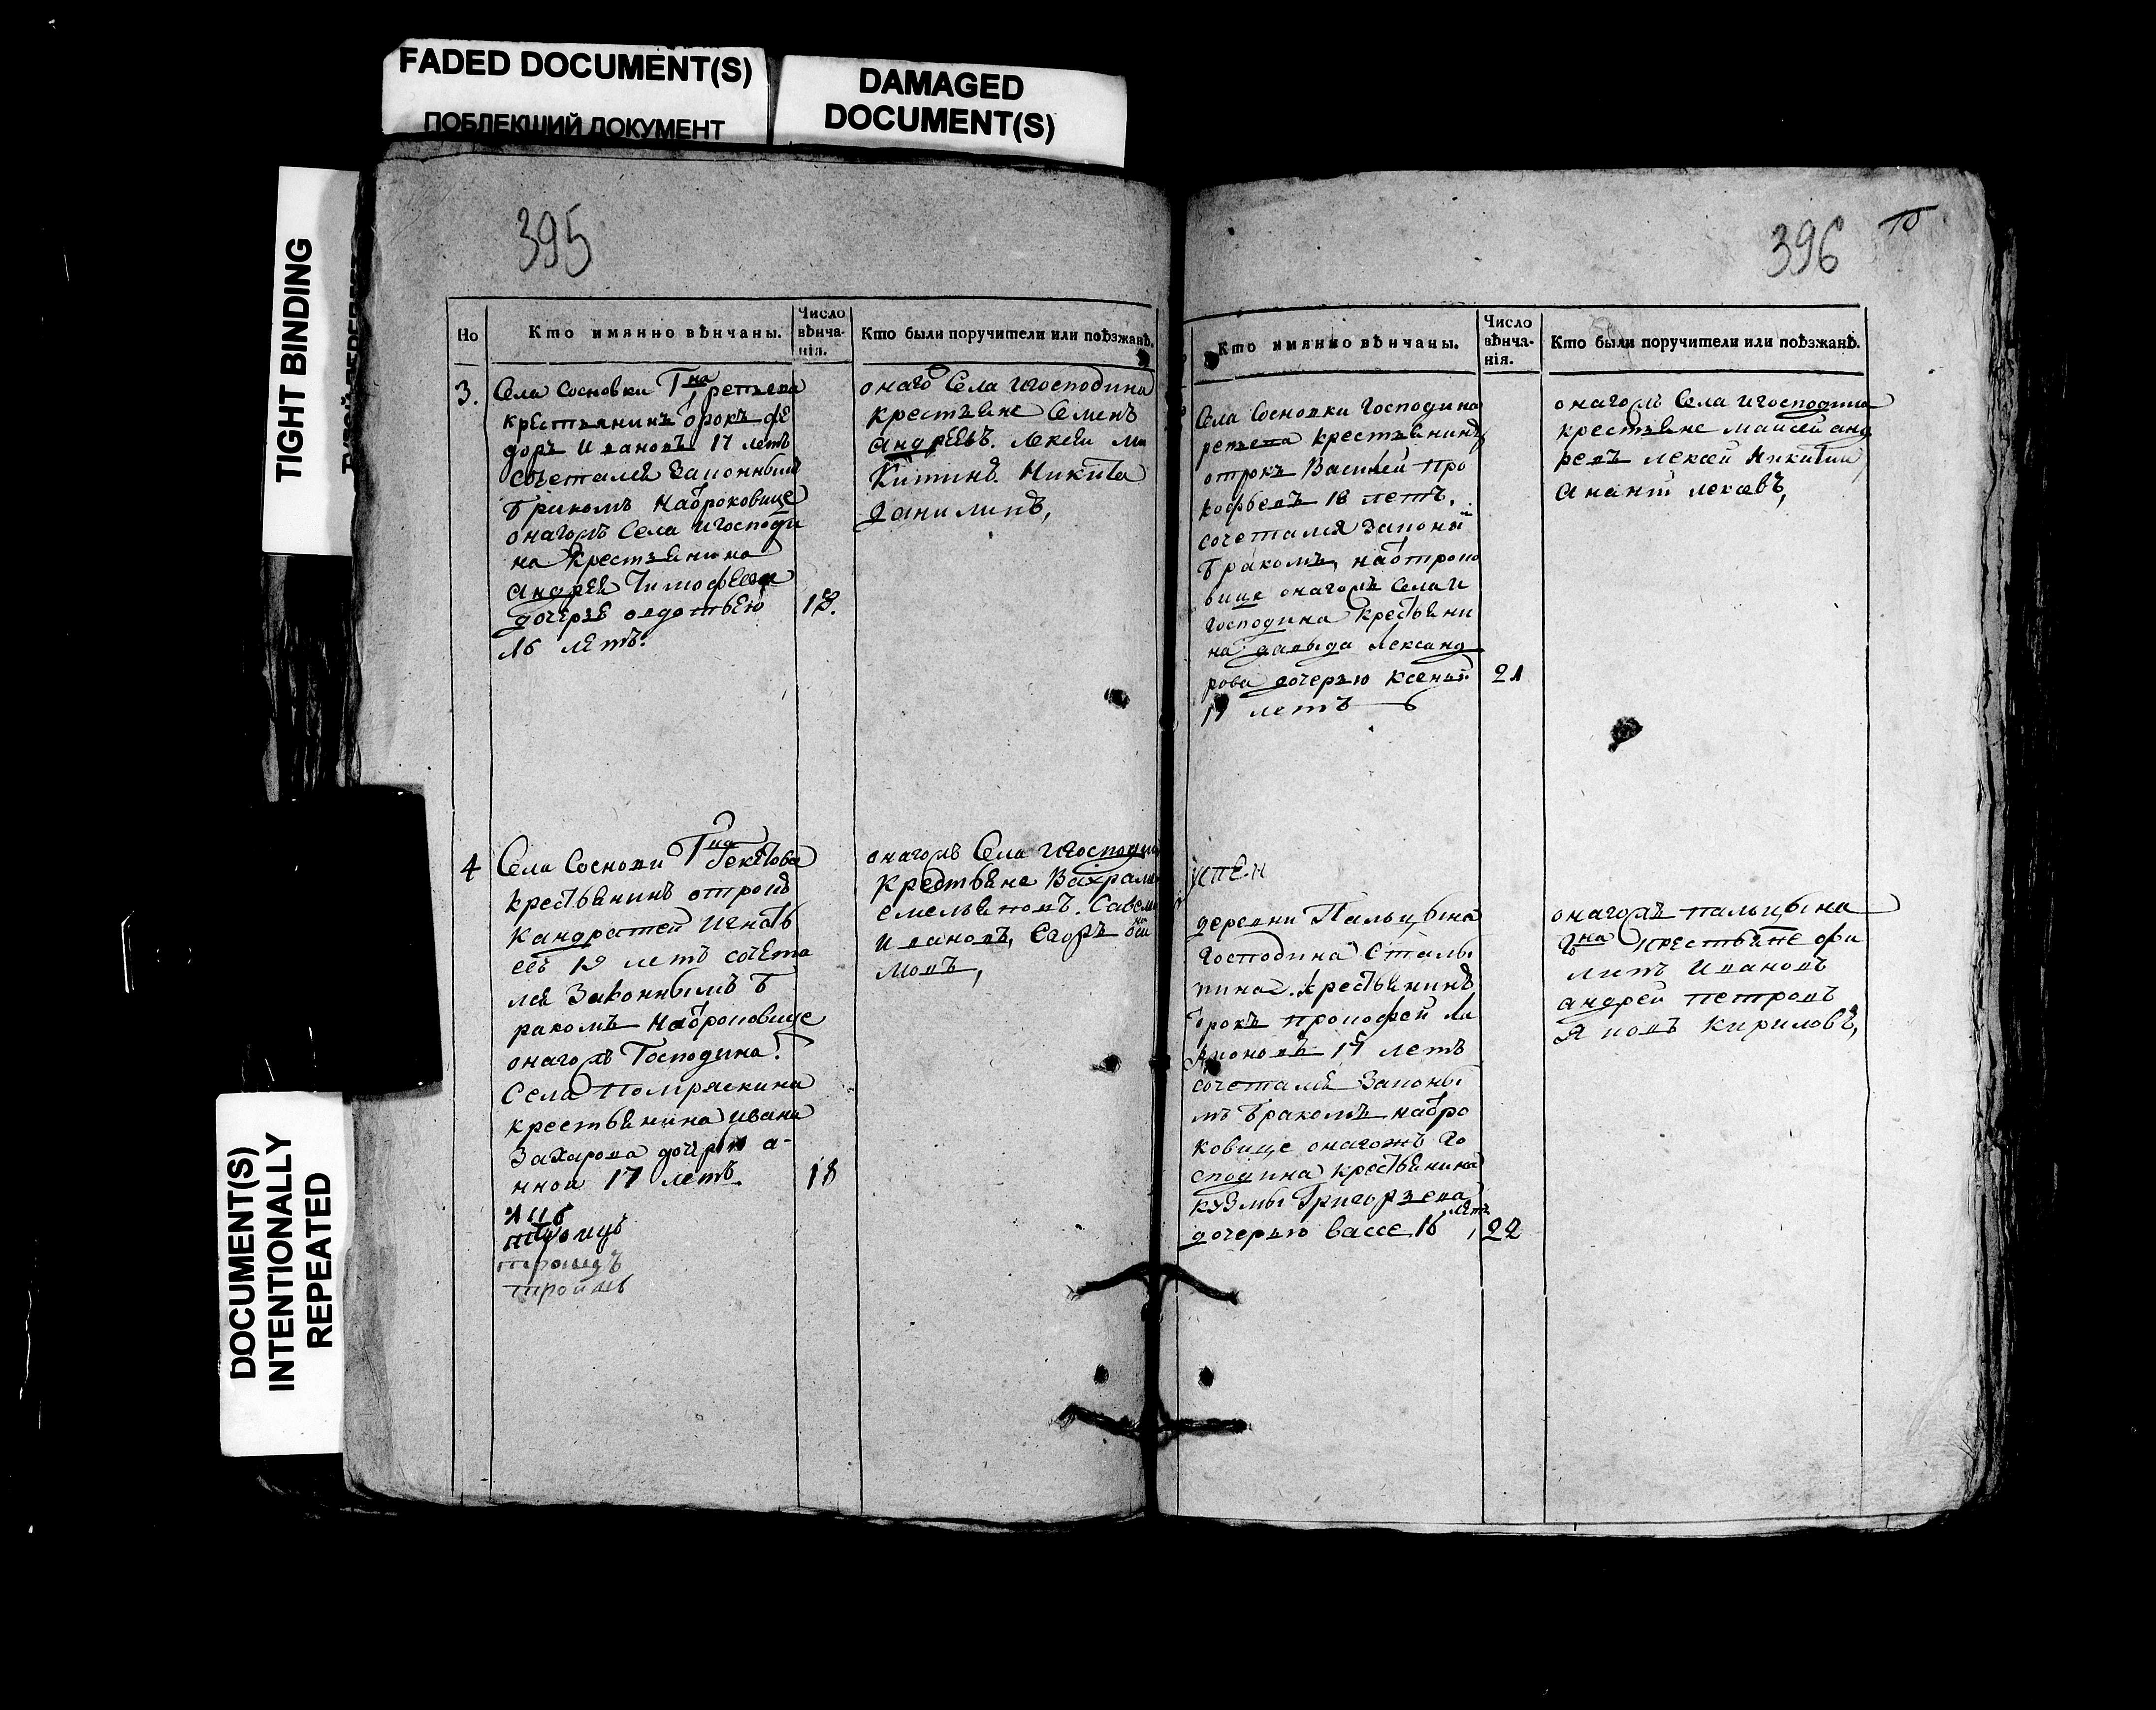 FADED DOCUMENT(S)
ПОБЛЕКШИЙ ДОКУМЕНТ
DAMAGED
DOCUMENT(S)
TIGHT BINDING
DOCUMENT(S)
INTENTIONALLY
REPEATED
395
Но
Кто имянно вѣнчаны.
Число
вѣнча-
нія.
Кто были поручители или поѣзжанѣ.
3.
Села Сосновки Гна
крестьянинъ отрокъ фе
доръ Ивановъ 17 летъ
сочетался Законнымъ
бракомъ На отроковице
онагожъ Села и господи
на крестьянина
андрея Тимофеева
дочерье овдотьею
16 летъ.
18.
онаго Села и господина
крестьяне Семенъ
андреевъ. лексеи ми
китинъ. Никита
данилинъ,
4
Села Сосновки Гна Бекѣтова
крестьянинъ отрокъ
кандратей Игнать
евъ 19 летъ сочета
лся Законнымъ б
ракомъ На отроковице
онагожъ Господина
Села Помряскина
крестьянина ивана
Захарова дочерью а-
нной 17 летъ.
18
троицъ
троицъ
онагожъ Села и господина
крестьяне Вахрамей
емельяновъ. Савелий
Ивановъ, Егоръ
396
Кто имянно вѣнчаны.
Число
вѣнча-
нія.
Кто были поручители или поѣзжанѣ.
Села Сосновки Господина
крестьянинъ
отрокъ Василей про
кофьевъ 18 летъ,
сочетался Законы
бракомъ, на отроко
вице онагожъ Села и
господина крестьяни
на давыда лександ
рова дочерью ксеньей
17 летъ
21
онагожъ Села и господина
крестьяне майсей анд
ревъ лексей Никитин
успен
деревни Пальцына
Господина Столы
пина крестьянинъ
отрокъ прокофей ла
рионовъ 17 летъ
сочетался Законы
мъ бракомъ на отро
ковице онагожъ Го
сподина крестьянина
кузмы Григорьева
дочерью вассе 16 летъ,
22
онагожъ пальцына
Гна крестьяне фи
липъ Ивановъ
андрей петровъ
Яковъ кириловъ,